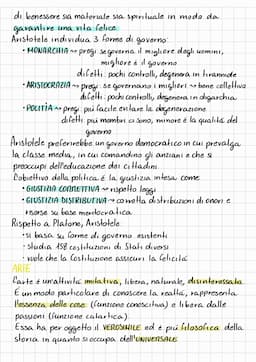 di benessere sia materiale sia spirituale in modo da
garantire una vita felice
Aristotele individua 3 forme di governo:
• MONARCHIA → pregi: se governa il migliore degli uomini,
migliore è il governo
difetti: pochi controlli, degenera in tirannide
• ARISTOCRAZIA → pregi: se governano i migliori → bene collettivo
difetti: pochi controlli, degenera in oligarchia
• POLITÌA → pregi: più facile evitare la degenerazione
difetti: più membri ci sono, minore è la qualità del
governo
Aristotele preferirebbe un governo democratico in cui prevalga
la classe media, in cui comandino gli anziani e che si
preoccupi dell'educazione dei cittadini.
L'obiettivo della politica è la giustizia intesa come:
• GIUSTIZIA CORRETTIVA → rispetto leggi
• GIUSTIZIA DISTRIBUTIVA → corretta distribuzioni di onori e
risorse su base meritocratica
Rispetto a Platone, Aristotele:
• si basa su forme di governo esistenti
• studia 158 costituzioni di Stati diversi
• vuole che la Costituzione assicuri la felicità
ARTE
L'arte è un'attività imitativa, libera, naturale, disinteressata.
È un modo particolare di conoscere la realtà, rappresenta
l'essenza delle cose (funzione conoscitiva) e libera dalle
passioni (funzione catartica).
Essa ha per oggetto il VEROSIMILE ed è più filosofica della
storia in quanto si occupa dell'UNIVERSALE